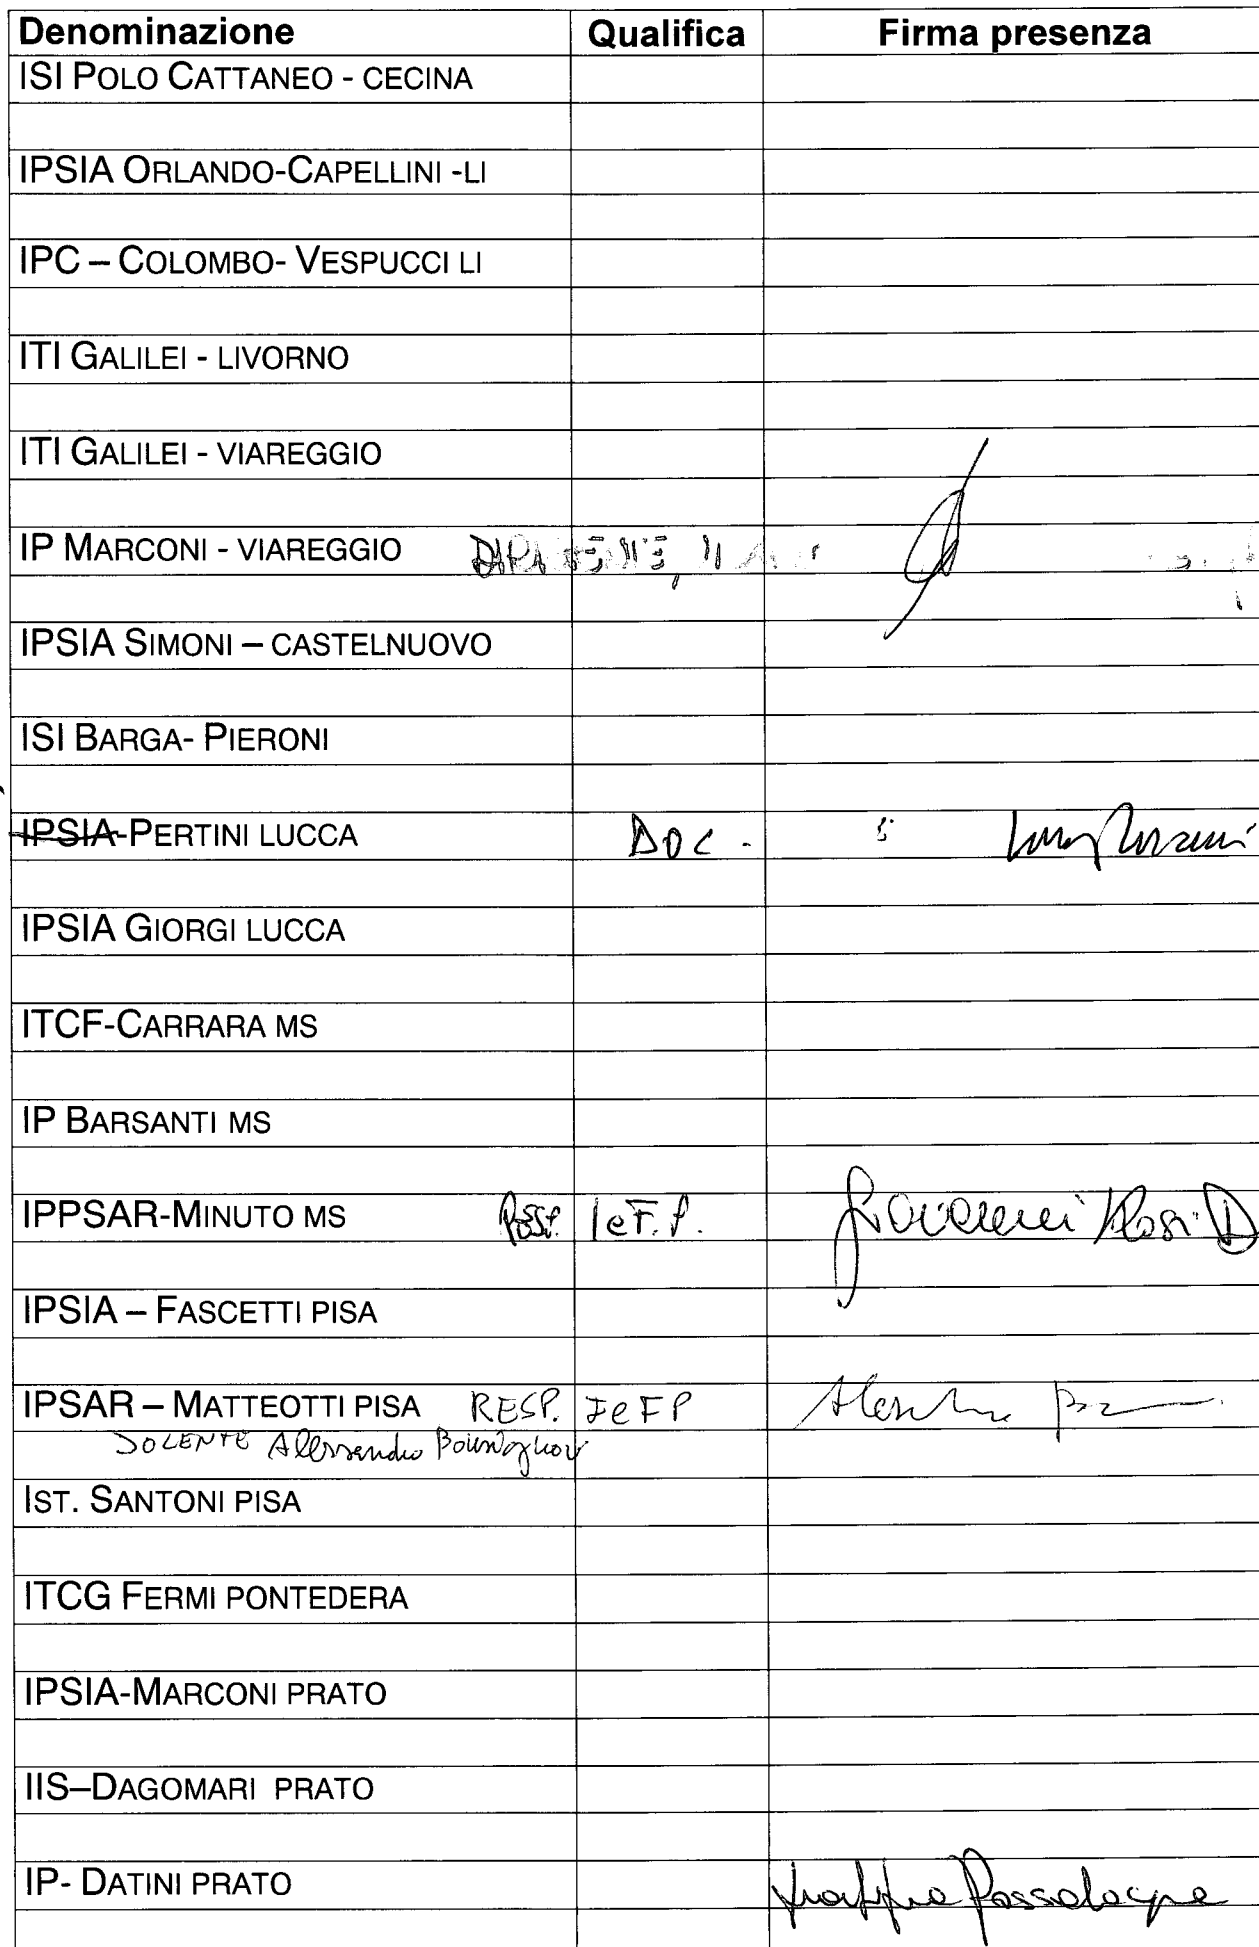 Denominazione Qualifica Firma presenza
ISI POLO CATTANEO - CECINA
IPSIA ORLANDO-CAPELLINI -LI
IPC – COLOMBO- VESPUCCI LI
ITI GALILEI - LIVORNO
ITI GALILEI - VIAREGGIO
IP MARCONI - VIAREGGIO
IPSIA SIMONI – CASTELNUOVO
ISI BARGA- PIERONI
IPSIA-PERTINI LUCCA DOC.
IPSIA GIORGI LUCCA
ITCF-CARRARA MS
IP BARSANTI MS
IPPSAR-MINUTO MS RESP. IeF.P.
IPSIA – FASCETTI PISA
IPSAR – MATTEOTTI PISA RESP. IeFP
DOCENTE Alessandro
IST. SANTONI PISA
ITCG FERMI PONTEDERA
IPSIA-MARCONI PRATO
IIS–DAGOMARI PRATO
IP- DATINI PRATO